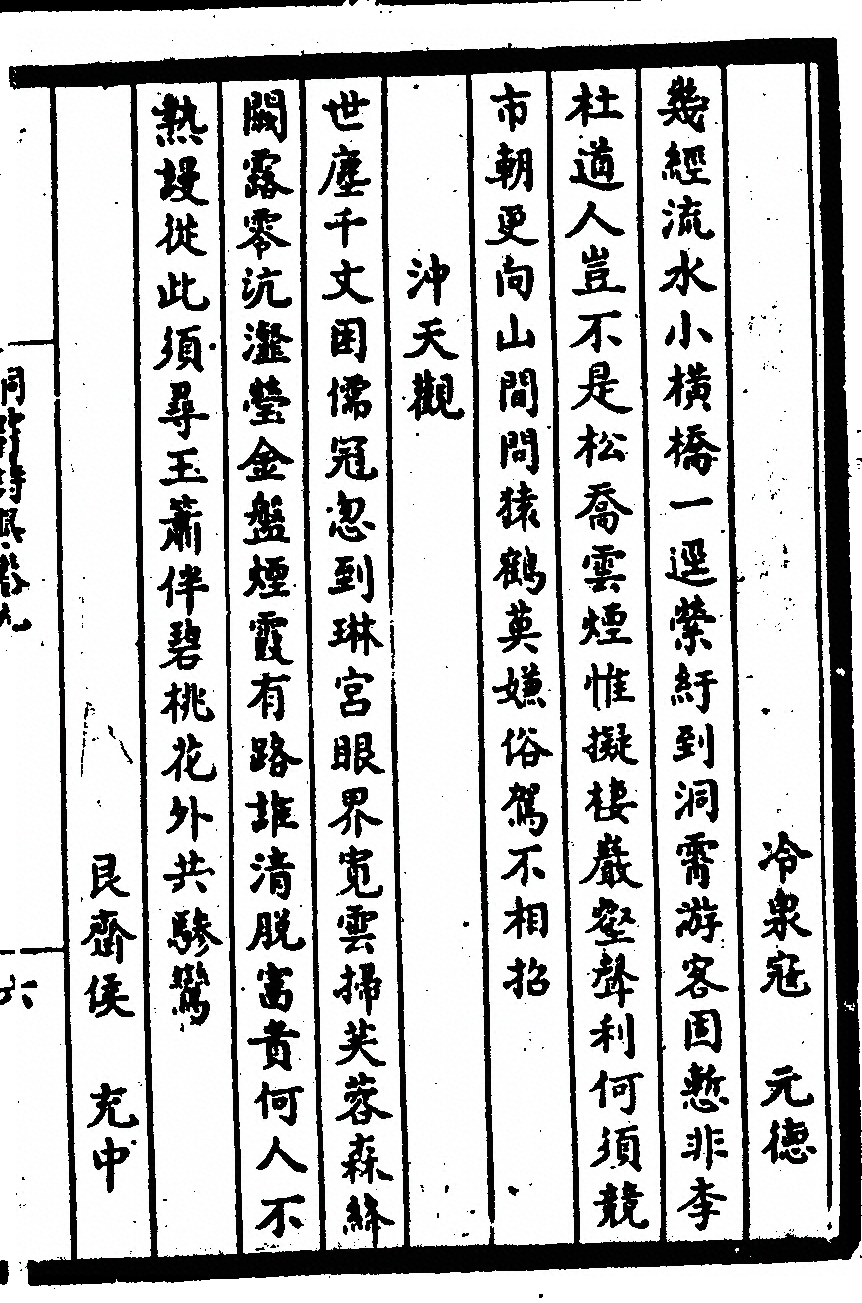 冷泉寇　元德
幾經流水小橫橋一逕縈紆到洞霄游客固慙非李
杜道人豈不是松喬雲煙惟擬棲巖壑聲利何須競
市朝更向山間問猿鶴莫嫌俗駕不相招
沖天觀
世塵千丈困儒冠忽到琳宮眼界寬雲掃芙蓉森絳
闕露零沆瀣瑩金盤煙霞有路誰清脫富貴何人不
熱謾從此須尋玉簫伴碧桃花外共驂鸞
艮齋侯　充中
洞霄詩集卷九
六